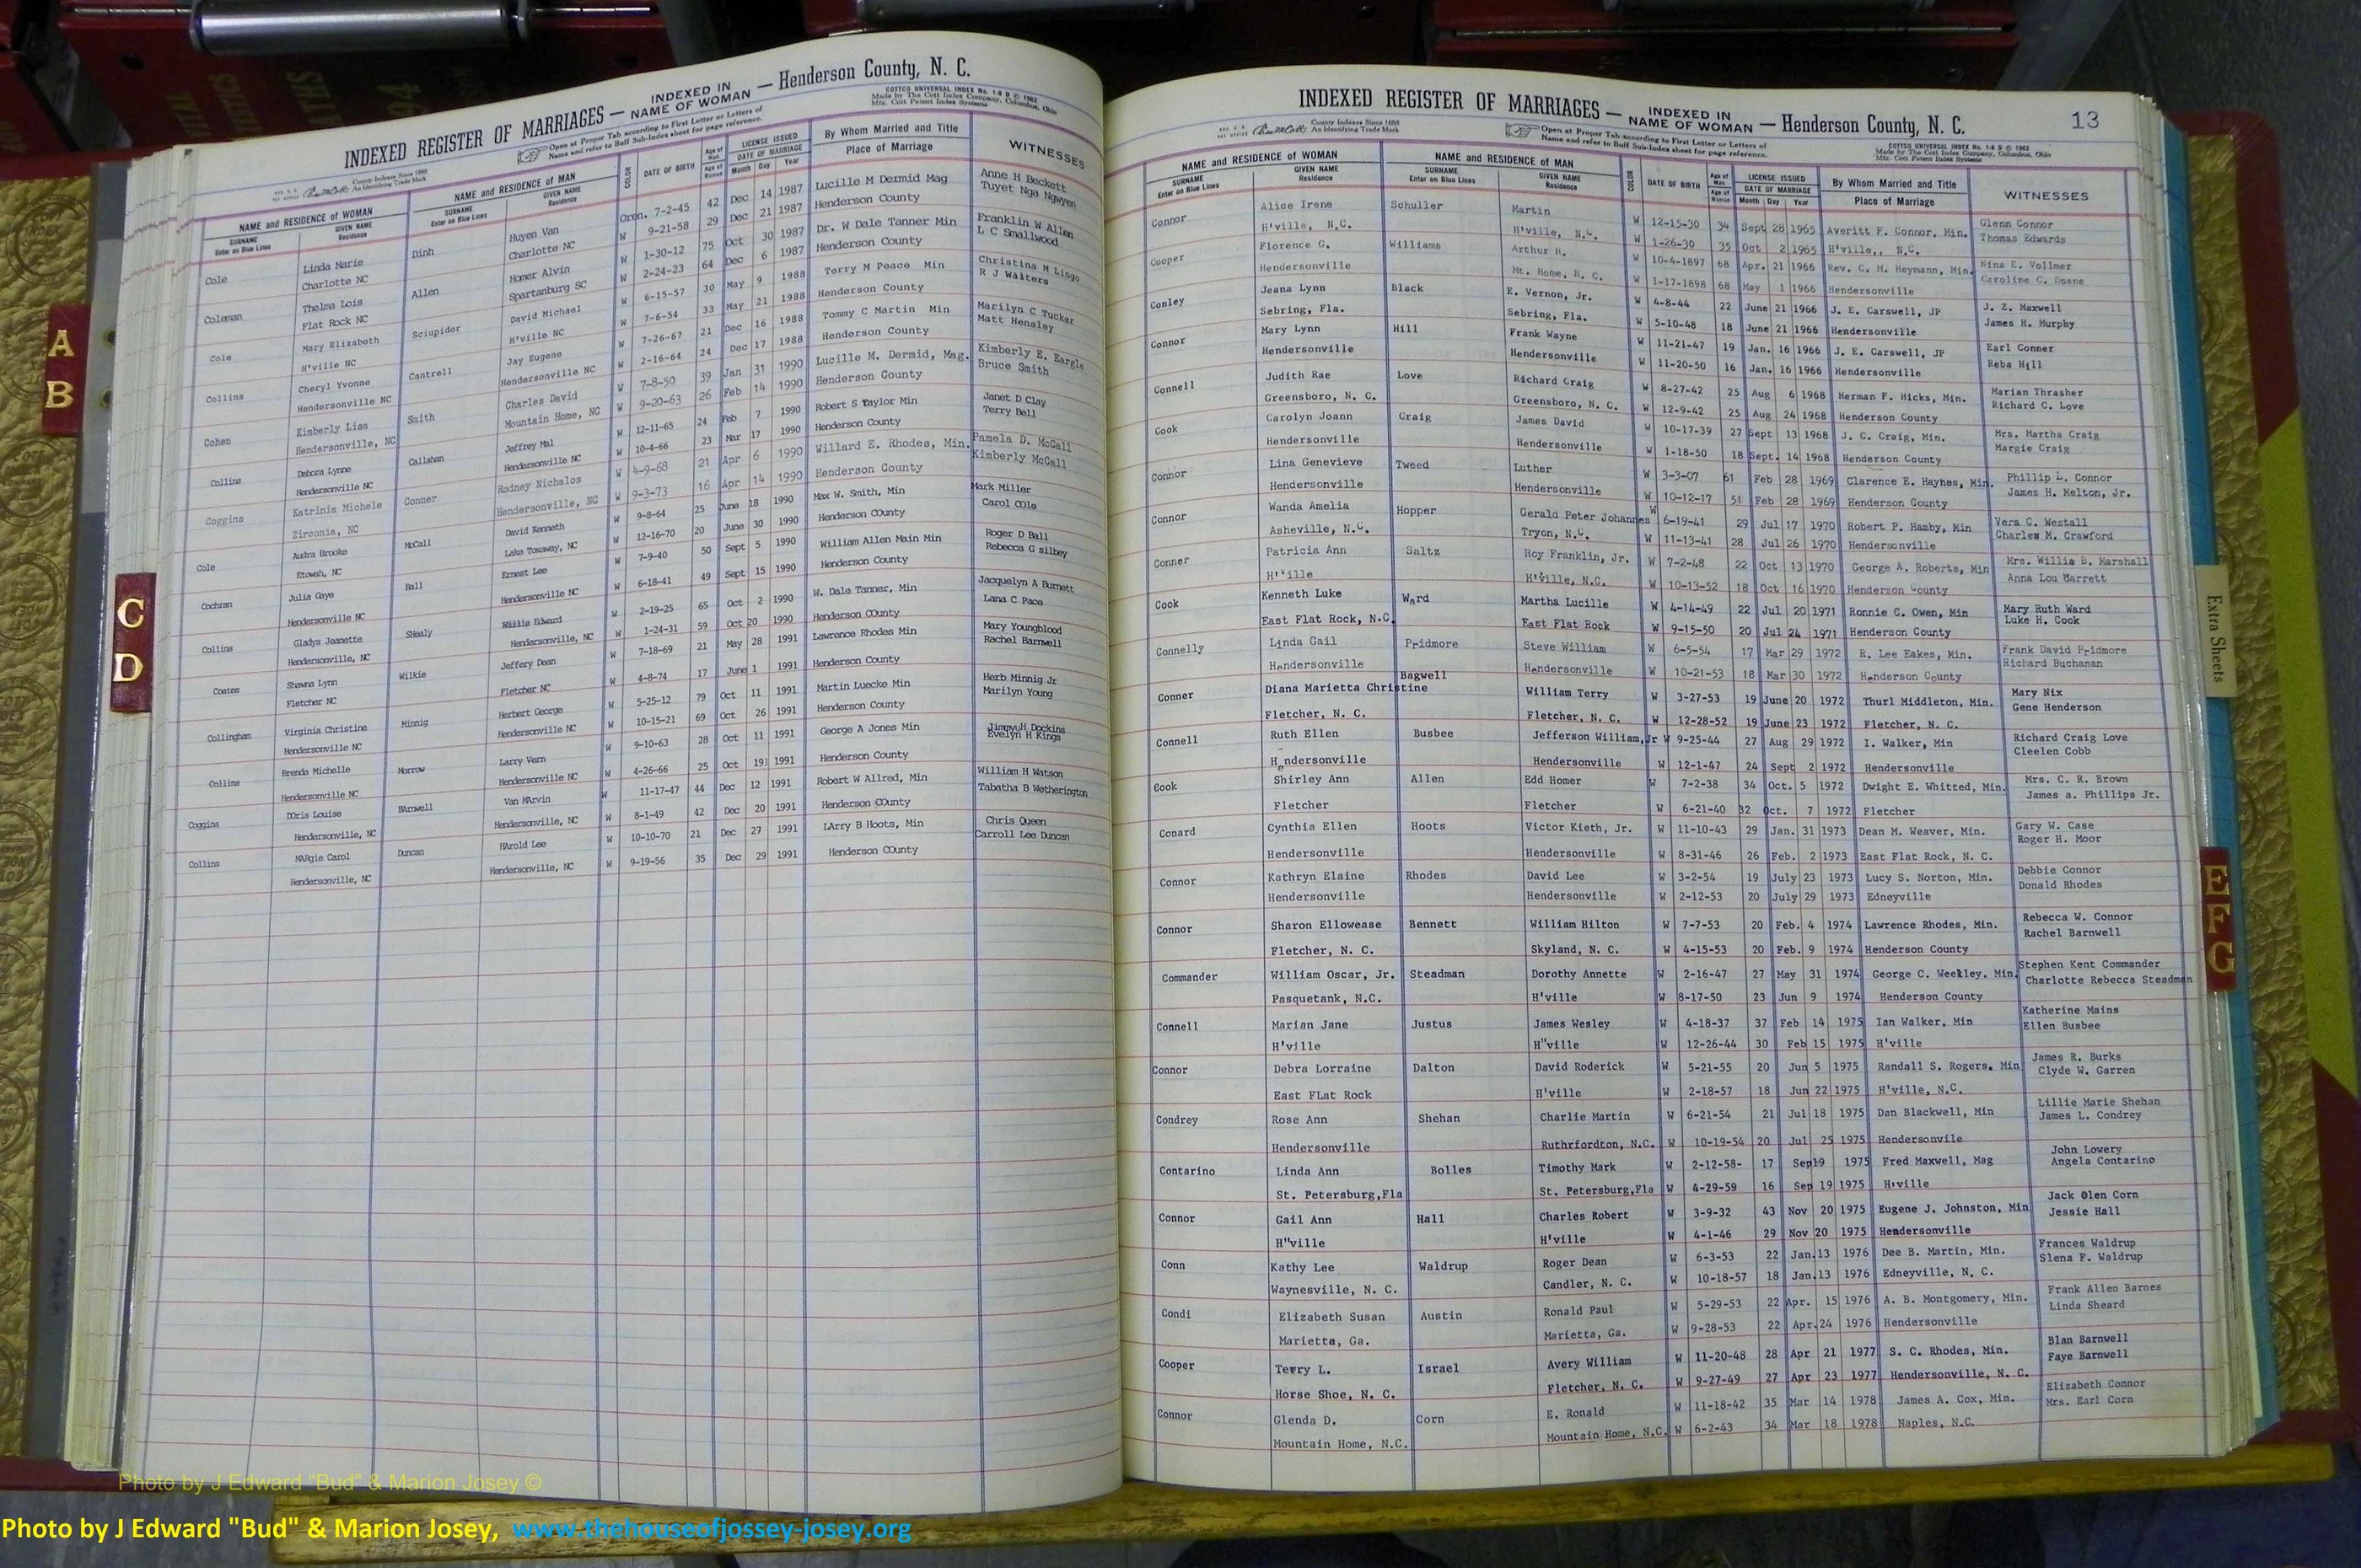 INDEXED REGISTER OF MARRIAGES — INDEXED IN NAME OF WOMAN — Henderson County, N. C.
County Indexes Since 1888
An Identifying Trade Mark
Open at Proper Tab according to First Letter or Letters of
Name and refer to Buff Sub-Index sheet for page reference.
COTTCO UNIVERSAL INDEX No. 1-8 D © 1962
Made by The Cott Index Company, Columbus, Ohio
Mfg. Cott Patent Index Systems
NAME and RESIDENCE OF WOMAN NAME and RESIDENCE OF MAN COLOR DATE OF BIRTH Age of Man LICENSE ISSUED By Whom Married and Title WITNESSES
SURNAME Enter on Blue Lines GIVEN NAME Residence SURNAME Enter on Blue Lines GIVEN NAME Residence Age of Woman DATE OF MARRIAGE Month Day Year Place of Marriage
Cole Linda Marie Dinh Huyen Van Oren. 7-2-45 42 Dec 14 1987 Lucille M Dermid Mag Anne H Beckett
Charlotte NC Charlotte NC W 9-21-58 29 Dec 21 1987 Henderson County Tuyet Nga Ngwyen
Coleman Thelma Lois Allen Homer Alvin W 1-30-12 75 Oct 30 1987 Dr. W Dale Tanner Min Franklin W Allen
Flat Rock NC Spartanburg SC W 2-24-23 64 Dec 6 1987 Henderson County L C Smallwood
Cole Mary Elizabeth Sciupider David Michael W 6-15-57 30 May 9 1988 Terry M Peace Min Christina M Lingo
H'ville NC H'ville NC W 7-6-54 33 May 21 1988 Henderson County R J Walters
Collins Cheryl Yvonne Cantrell Jay Eugene W 7-26-67 21 Dec 16 1988 Tommy C Martin Min Marilyn C Tucker
Hendersonville NC Hendersonville NC W 2-16-64 24 Dec 17 1988 Henderson County Matt Hensley
Cohen Kimberly Lisa Smith Charles David W 7-8-50 39 Jan 31 1990 Lucille M. Dermid, Mag. Kimberly E. Eargle
Hendersonville, NC Mountain Home, NC W 9-20-63 26 Feb 14 1990 Henderson County Bruce Smith
Collins Debora Lynne Callahan Jeffrey Mal W 12-11-65 24 Feb 7 1990 Robert S Taylor Min Janet D Clay
Hendersonville NC Hendersonville NC W 10-4-66 23 Mar 17 1990 Henderson County Terry Bell
Coggins Katrinia Michele Conner Rodney Nichalos W 4-9-68 21 Apr 6 1990 Willard E. Rhodes, Min. Pamela D. McCall
Zirconia, NC Hendersonville, NC W 9-3-73 16 Apr 14 1990 Henderson County Kimberly McCall
Cole Audra Brooke McCall David Kenneth W 9-8-64 25 June 18 1990 Max W. Smith, Min Mark Miller
Etowah, NC Lake Toxaway, NC W 12-16-70 20 June 30 1990 Henderson COunty Carol COle
Cochran Julia Gaye Ball Ernest Lee W 7-9-40 50 Sept 5 1990 William Allen Main Min Roger D Ball
Hendersonville NC Hendersonville NC W 6-18-41 49 Sept 15 1990 Henderson County Rebecca G silbey
Collins Gladys Jeanette SHealy Willie Edward W 2-19-25 65 Oct 2 1990 W. Dale Tanner, Min Jacquelyn A Burnett
Hendersonville, NC Hendersonville, NC W 1-24-31 59 Oct 20 1990 Henderson COunty Lana C Pace
Coates Shawna Lynn Wilkie Jeffery Dean W 7-18-69 21 May 28 1991 Lawrence Rhodes Min Mary Youngblood
Fletcher NC Fletcher NC W 4-8-74 17 June 1 1991 Henderson County Rachel Barnwell
Collingham Virginia Christine Minnig Herbert George W 5-25-12 79 Oct 11 1991 Martin Luecke Min Herb Minnig Jr
Hendersonville NC Hendersonville NC W 10-15-21 69 Oct 26 1991 Henderson County Marilyn Young
Collins Brenda Michelle Morrow Larry Vern W 9-10-63 28 Oct 11 1991 George A Jones Min JimmyuH Dockins
Hendersonville NC Hendersonville NC W 4-26-66 25 Oct 19 1991 Henderson County Evelyn H Kings
Coggins DOris Louise BArnwell Van MArvin W 11-17-47 44 Dec 12 1991 Robert W Allred, Min William H Watson
Hendersonville, NC Hendersonville, NC W 8-1-49 42 Dec 20 1991 Henderson COunty Tabatha B Wetherington
Collins MARgie Carol Duncan HArold Lee W 10-10-70 21 Dec 27 1991 LArry B Hoots, Min Chris Queen
Hendersonville, NC Hendersonville, NC W 9-19-56 35 Dec 29 1991 Henderson COunty Carroll Lee Duncan
INDEXED REGISTER OF MARRIAGES — INDEXED IN NAME OF WOMAN — Henderson County, N. C. 13
County Indexes Since 1888
An Identifying Trade Mark
Open at Proper Tab according to First Letter or Letters of
Name and refer to Buff Sub-Index sheet for page reference.
COTTCO UNIVERSAL INDEX No. 1-8 D © 1962
Made by The Cott Index Company, Columbus, Ohio
Mfg. Cott Patent Index Systems
NAME and RESIDENCE OF WOMAN NAME and RESIDENCE OF MAN COLOR DATE OF BIRTH Age of Man LICENSE ISSUED By Whom Married and Title WITNESSES
SURNAME Enter on Blue Lines GIVEN NAME Residence SURNAME Enter on Blue Lines GIVEN NAME Residence Age of Woman DATE OF MARRIAGE Month Day Year Place of Marriage
Connor Alice Irene Schuller Martin W 12-15-30 34 Sept 28 1965 Averitt F. Connor, Min. Glenn Connor
H'ville, N.C. H'ville, N.C. W 1-26-30 35 Oct 2 1965 H'ville,, N.C. Thomas Edwards
Cooper Florence G. Williams Arthur H. W 10-4-1897 68 Apr. 21 1966 Rev. C. M. Heymann, Min. Nina E. Vollmer
Hendersonville Mt. Home, N. C. W 1-17-1898 68 May 1 1966 Hendersonville Caroline C. Doane
Conley Jeana Lynn Black E. Vernon, Jr. W 4-8-44 22 June 21 1966 J. E. Carswell, JP J. Z. Maxwell
Sebring, Fla. Sebring, Fla. W 5-10-48 18 June 21 1966 Hendersonville James H. Murphy
Connor Mary Lynn Hill Frank Wayne W 11-21-47 19 Jan. 16 1966 J. E. Carswell, JP Earl Conner
Hendersonville Hendersonville W 11-20-50 16 Jan. 16 1966 Hendersonville Reba Hill
Connell Judith Rae Love Richard Craig W 8-27-42 25 Aug 6 1968 Herman F. Hicks, Min. Marian Thrasher
Greensboro, N. C. Greensboro, N. C. W 12-9-42 25 Aug 24 1968 Henderson County Richard C. Love
Cook Carolyn Joann Craig James David W 10-17-39 27 Sept 13 1968 J. C. Craig, Min. Mrs. Martha Craig
Hendersonville Hendersonville W 1-18-50 18 Sept. 14 1968 Henderson County Margie Craig
Connor Lina Genevieve Tweed Luther W 3-3-07 61 Feb 28 1969 Clarence E. Hayhes, Min. Phillip L. Connor
Hendersonville Hendersonville W 10-12-17 51 Feb 28 1969 Henderson County James H. Melton, Jr.
Connor Wanda Amelia Hopper Gerald Peter Johannes W 6-19-41 29 Jul 17 1970 Robert P. Hamby, Min Vera C. Westall
Asheville, N.C. Tryon, N.C. W 11-13-41 28 Jul 26 1970 Hendersonville Charles M. Crawford
Conner Patricia Ann Saltz Roy Franklin, Jr. W 7-2-48 22 Oct 13 1970 George A. Roberts, Min Mrs. Willie B. Marshall
H'ville H'ville, N.C. W 10-13-52 18 Oct 16 1970 Henderson County Anna Lou Barrett
Cook Kenneth Luke Ward Martha Lucille W 4-14-49 22 Jul 20 1971 Ronnie C. Owen, Min Mary Ruth Ward
East Flat Rock, N.C. East Flat Rock W 9-15-50 20 Jul 24 1971 Henderson County Luke H. Cook
Connelly Linda Gail Pridmore Steve William W 6-5-54 17 Mar 29 1972 R. Lee Eakes, Min. Frank David Pridmore
Hendersonville Hendersonville W 10-21-53 18 Mar 30 1972 Henderson County Richard Buchanan
Conner Diana Marietta Christine Bagwell William Terry W 3-27-53 19 June 20 1972 Thurl Middleton, Min. Mary Nix
Fletcher, N. C. Fletcher, N. C. W 12-28-52 19 June 23 1972 Fletcher, N. C. Gene Henderson
Connell Ruth Ellen Busbee Jefferson William,Jr W 9-25-44 27 Aug 29 1972 I. Walker, Min Richard Craig Love
Hendersonville Hendersonville W 12-1-47 24 Sept 2 1972 Hendersonville Cleelen Cobb
Cook Shirley Ann Allen Edd Homer W 7-2-38 34 Oct. 5 1972 Dwight E. Whitted, Min. Mrs. C. R. Brown
Fletcher Fletcher W 6-21-40 32 Oct. 7 1972 Fletcher James a. Phillips Jr.
Conard Cynthia Ellen Hoots Victor Kieth, Jr. W 11-10-43 29 Jan. 31 1973 Dean M. Weaver, Min. Gary W. Case
Hendersonville Hendersonville W 8-31-46 26 Feb. 2 1973 East Flat Rock, N. C. Roger H. Moor
Connor Kathryn Elaine Rhodes David Lee W 3-2-54 19 July 23 1973 Lucy S. Norton, Min. Debbie Connor
Hendersonville Hendersonville W 2-12-53 20 July 29 1973 Edneyville Donald Rhodes
Connor Sharon Ellowease Bennett William Hilton W 7-7-53 20 Feb. 4 1974 Lawrence Rhodes, Min. Rebecca W. Connor
Fletcher, N. C. Skyland, N. C. W 4-15-53 20 Feb. 9 1974 Henderson County Rachel Barnwell
Commander William Oscar, Jr. Steadman Dorothy Annette W 2-16-47 27 May 31 1974 George C. Weekley, Min. Stephen Kent Commander
Pasquetank, N.C. H'ville W 8-17-50 23 Jun 9 1974 Henderson County Charlotte Rebecca Steadman
Connell Marian Jane Justus James Wesley W 4-18-37 37 Feb 14 1975 Ian Walker, Min Katherine Mains
H'ville H"ville W 12-26-44 30 Feb 15 1975 H'ville Ellen Busbee
Connor Debra Lorraine Dalton David Roderick W 5-21-55 20 Jun 5 1975 Randall S. Rogers, Min James R. Burks
East FLat Rock H'ville W 2-18-57 18 Jun 22 1975 H'ville, N.C. Clyde W. Garren
Condrey Rose Ann Shehan Charlie Martin W 6-21-54 21 Jul 18 1975 Dan Blackwell, Min Lillie Marie Shehan
Hendersonville Ruthrfordton, N.C. W 10-19-54 20 Jul 25 1975 Hendersonvile James L. Condrey
Contarino Linda Ann Bolles Timothy Mark W 2-12-58- 17 Sep19 1975 Fred Maxwell, Mag John Lowery
St. Petersburg,Fla St. Petersburg,Fla W 4-29-59 16 Sep 19 1975 H'ville Angela Contarino
Connor Gail Ann Hall Charles Robert W 3-9-32 43 Nov 20 1975 Eugene J. Johnston, Min Jack Olen Corn
H"ville H'ville W 4-1-46 29 Nov 20 1975 Hendersonville Jessie Hall
Conn Kathy Lee Waldrup Roger Dean W 6-3-53 22 Jan.13 1976 Dee B. Martin, Min. Frances Waldrup
Waynesville, N. C. Candler, N. C. W 10-18-57 18 Jan.13 1976 Edneyville, N. C. Slena F. Waldrup
Condi Elizabeth Susan Austin Ronald Paul W 5-29-53 22 Apr. 15 1976 A. B. Montgomery, Min. Frank Allen Barnes
Marietta, Ga. Marietta, Ga. W 9-28-53 22 Apr.24 1976 Hendersonville Linda Sheard
Cooper Terry L. Israel Avery William W 11-20-48 28 Apr 21 1977 S. C. Rhodes, Min. Blan Barnwell
Horse Shoe, N. C. Fletcher, N. C. W 9-27-49 27 Apr 23 1977 Hendersonville, N. C. Faye Barnwell
Connor Glenda D. Corn E. Ronald W 11-18-42 35 Mar 14 1978 James A. Cox, Min. Elizabeth Connor
Mountain Home, N.C. Mountain Home, N.C. W 6-2-43 34 Mar 18 1978 Naples, N.C. Mrs. Earl Corn
A
B
C
D
Extra Sheets
E
F
G
Photo by J Edward "Bud" & Marion Josey ©
Photo by J Edward "Bud" & Marion Josey, www.thehouseofjossey-josey.org